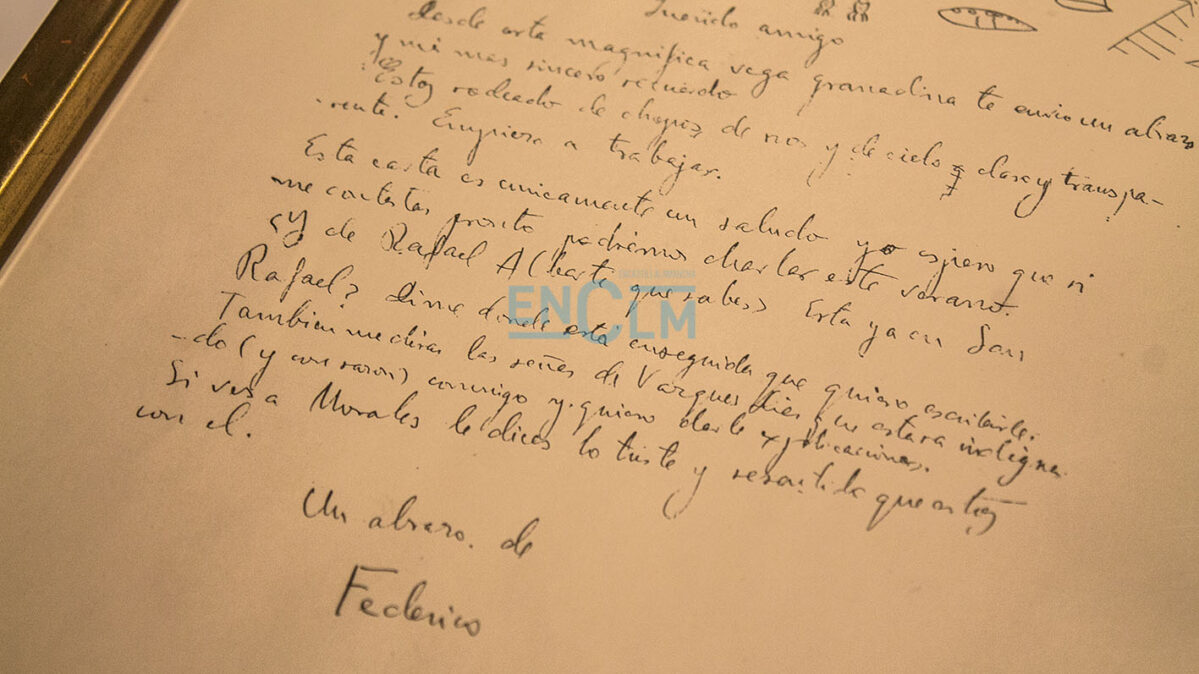 Querido amigo
Desde esta magnifica vega granadina te envio un abrazo
y mi mas sincero recuerdo
Estoy rodeado de chopos, de rios y de cielo claro y transpa-
-rente. Empiezo a trabajar.
Esta carta es unicamente un saludo y espero que si
me contestas pronto podremos charlar este verano.
¿y de Rafael Alberti que sabes? Esta ya en San
Rafael? Dime donde esta enseguida que quiero escribirle.
Tambien me diras las señas de Vazquez Diaz que estara indigna
-do (y con razon) conmigo y quiero darle explicaciones.
Si ves a Morales le dices lo triste y resentido que estoy
con el.
Un abrazo. de
Federico
CASTILLA-LA MANCHA
ENCLM